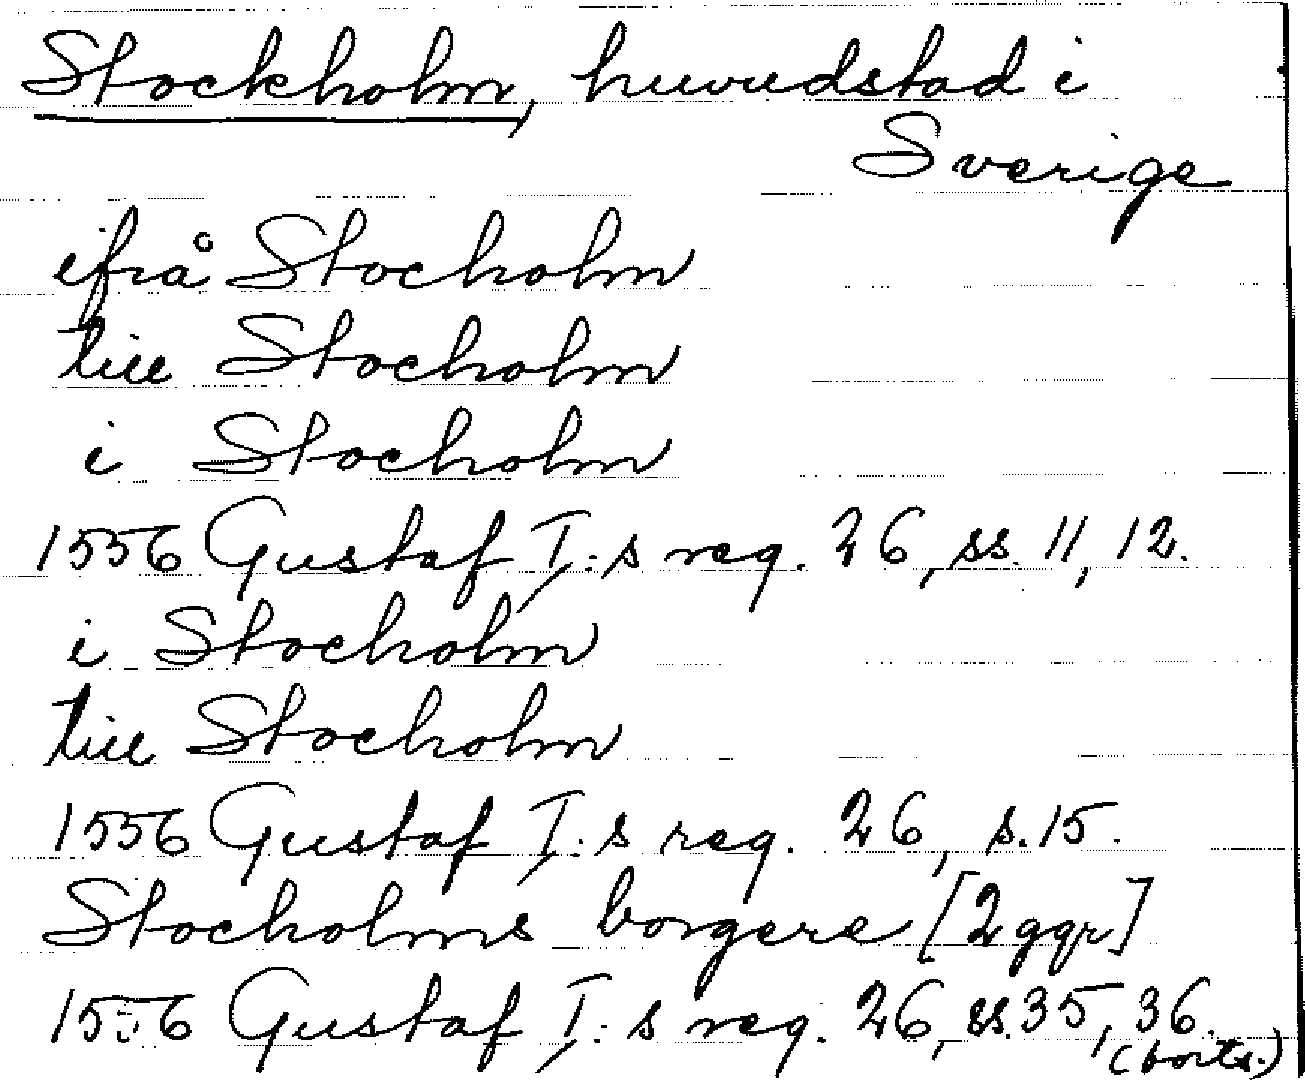 Stockholm, huvudstad i
Sverige
ifrå Stocholm
till Stocholm
i Stocholm
1556 Gustaf I:s reg. 26, ss. 11, 12.
i Stocholm
till Stocholm
1556 Gustaf I:s reg. 26, s. 15.
Stocholms borgere [2 ggr]
1556 Gustaf I:s reg. 26, ss. 35, 36.
(forts.)